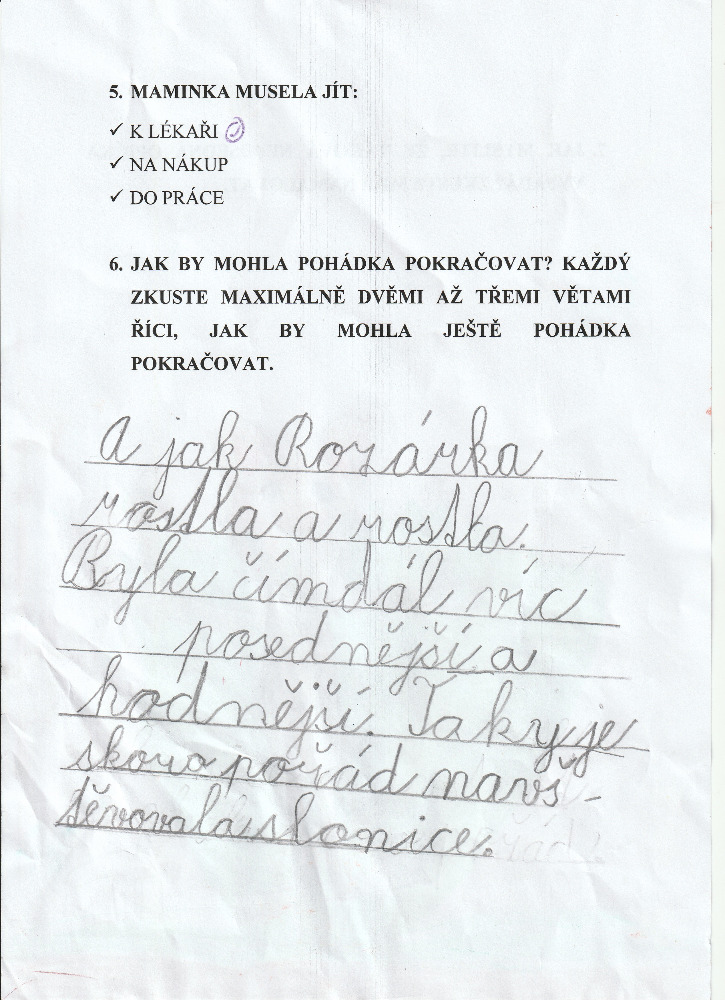 5. MAMINKA MUSELA JÍT:
✓ K LÉKAŘI
✓ NA NÁKUP
✓ DO PRÁCE
6. JAK BY MOHLA POHÁDKA POKRAČOVAT? KAŽDÝ
ZKUSTE MAXIMÁLNĚ DVĚMI AŽ TŘEMI VĚTAMI
ŘÍCI, JAK BY MOHLA JEŠTĚ POHÁDKA
POKRAČOVAT.
A jak Rozárka
rostla a rostla.
Byla čímdál víc
posednější a
hodnější. Taky je
skoro pořád navš-
těvovala slonice.